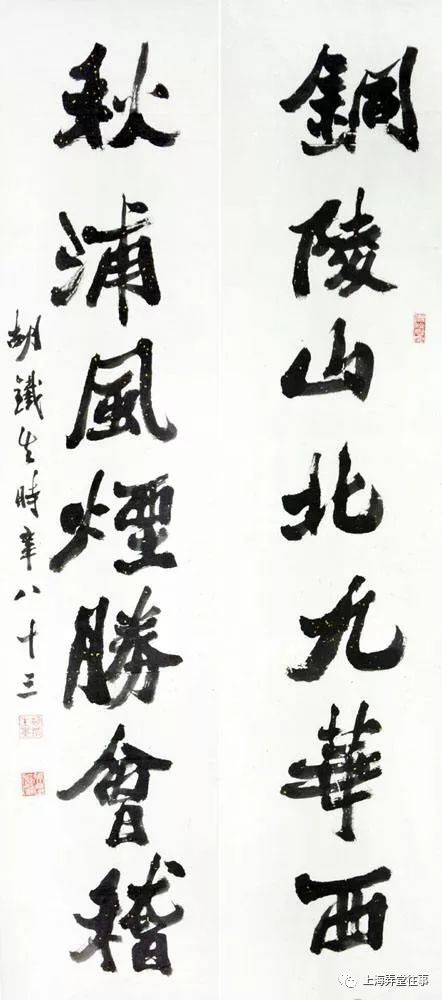 銅陵山北九華西
秋浦風煙勝會稽
胡鐵生時年八十三
上海弄堂往事